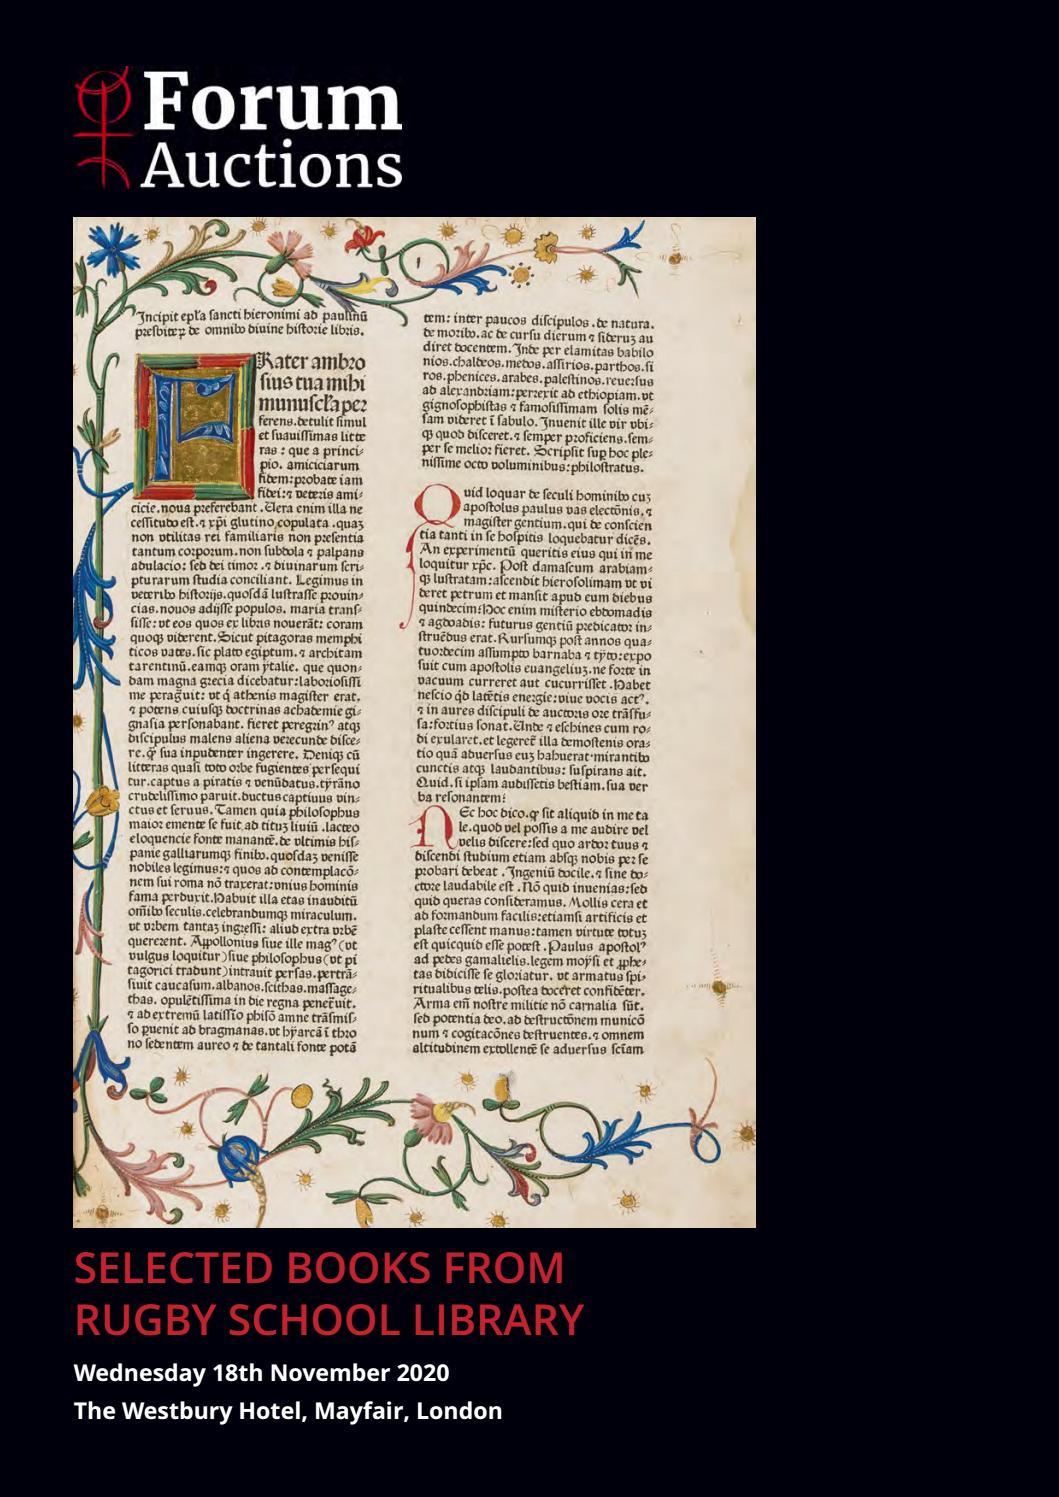 Forum
Auctions
Incipit epl'a sancti hieronimi ad paulinū
presbiteꝝ de omnibꝰ diuine historie libris.
Rater ambro
sius tua mihi
munuscl'a per
ferens.detulit simul
et suauissimas litte
ras : que a princi-
pio. amiciciarum
fidem:probate iam
fidei:⁊ veteris ami-
cicie.noua preferebant .Uera enim illa ne
cessitudo est.⁊ xp̄i glutino copulata .quaʒ
non vtilitas rei familiaris non presentia
tantum corporum.non subdola ⁊ palpans
adulacio: sed dei timor .⁊ diuinarum scri-
pturarum studia conciliant. Legimus in
veteribꝰ historijs.quosdā lustrasse prouin-
cias.nouos adijsse populos. maria trans-
sisse: vt eos quos ex libris nouerāt: coram
quoqꝫ viderent.Sicut pitagoras memphi
ticos vates.sic plato egiptum.⁊ architam
tarentinū.eamqꝫ oram ytalie. que quon-
dam magna grecia dicebatur:laboriosissi
me peragͥuit: vt q̇ athenis magister erat.
⁊ potens cuiusqꝫ doctrinas achademie gi-
gnasia personabant. fieret peregrinꝰ atqꝫ
discipulus malens aliena verecunde disce-
re.qͣ sua inpudenter ingerere. Deniqꝫ cū
litteras quasi toto orbe fugientes persequi
tur.captus a piratis ⁊ venūdatus.tyrāno
crudelissimo paruit.ductus captiuus vin-
ctus et seruus. Tamen quia philosophus
maior emente se fuit.ad tituʒ liuiū .lacteo
eloquencie fonte manantē.de vltimis his-
panie galliarumqꝫ finibꝰ.quosdaʒ venisse
nobiles legimus:⁊ quos ad contemplacō-
nem sui roma nō traxerat:vnius hominis
fama perduxit.Habuit illa etas inauditū
om̄ibꝰ seculis.celebrandumqꝫ miraculum.
vt vrbem tantaʒ ingressi: aliud extra vrbē
quererent. Appollonius siue ille magꝰ (vt
vulgus loquitur) siue philosophus (vt pi
tagorici tradunt) intrauit persas.pertrā-
siuit caucasum.albanos.scithas.massage-
thas. opulētissima in die regna penetͣuit.
⁊ ad extremū latissīo phisō amne trāsmis-
so ꝑuenit ad bragmanas.vt hyarcā ī thro
no sedentem aureo ⁊ de tantali fonte potā
tem: inter paucos discipulos .de natura.
de moribꝰ.ac de cursu dierum ⁊ sideruʒ au
diret docentem. Inde per elamitas babilo
nios.chaldeos.medos.assirios.parthos.si
ros.phenices.arabes.palestinos.reuersus
ad alexandriam:perrexit ad ethiopiam.vt
gignosophistas ⁊ famosissimam solis mē-
sam videret ī sabulo. Inuenit ille vir vbi-
qꝫ quod disceret.⁊ semper proficiens.sem-
per se melior fieret. Scripsit suꝑ hoc ple-
nissime octo voluminibus:philostratus.
Quid loquar de seculi hominibꝰ cuʒ
apostolus paulus vas electōnis.⁊
magister gentium.qui de conscien
tia tanti in se hospitis loquebatur dicēs.
An experimentū queritis eius qui in me
loquitur xp̄c. Post damascum arabiam-
qꝫ lustratam:ascendit hierosolimam vt vi
deret petrum et mansit apud eum diebus
quindecim:Hoc enim misterio ebdomadis
⁊ agdoadis: futurus gentiū predicator in-
struēdus erat. Rursumqꝫ post annos qua-
tuordecim assumpto barnaba ⁊ tyto:expo
suit cum apostolis euangeliuʒ.ne forte in
vacuum curreret aut cucurrisset .Habet
nescio qͥd latētis energie:viue vocis actꝰ.
⁊ in aures discipuli de auctoris ore trāsfu-
sa:fortius sonat. Unde ⁊ eschines cum ro-
di exularet.et legeret illa demostenis ora-
tio quā aduersus euʒ habuerat:mirantibꝰ
cunctis atqꝫ laudantibus: suspirans ait.
Quid.si ipsam audissetis bestiam.sua ver
ba resonantem:
Nec hoc dico.qͣ sit aliquid in me ta
le.quod vel possis a me audire vel
velis discere:sed quo ardor tuus ⁊
discendi studium etiam absqꝫ nobis per se
probari debeat . Ingeniū docile.⁊ sine do-
ctore laudabile est . Nō quid inuenias:sed
quid queras consideramus. Mollis cera et
ad formandum facilis:etiamsi artificis et
plaste cessent manus:tamen virtute totuʒ
est quicquid esse potest . Paulus apostolꝰ
ad pedes gamalielis.legem moysi et ꝓphe-
tas didicisse se gloriatur. vt armatus spi-
ritualibus telis.postea doceret confidēter.
Arma em̄ nostre militie nō carnalia sūt.
sed potentia deo.ad destructōnem municō
num ⁊ cogitacōnes destruentes.⁊ omnem
altitudinem extollentē se aduersus sciam
SELECTED BOOKS FROM
RUGBY SCHOOL LIBRARY
Wednesday 18th November 2020
The Westbury Hotel, Mayfair, London